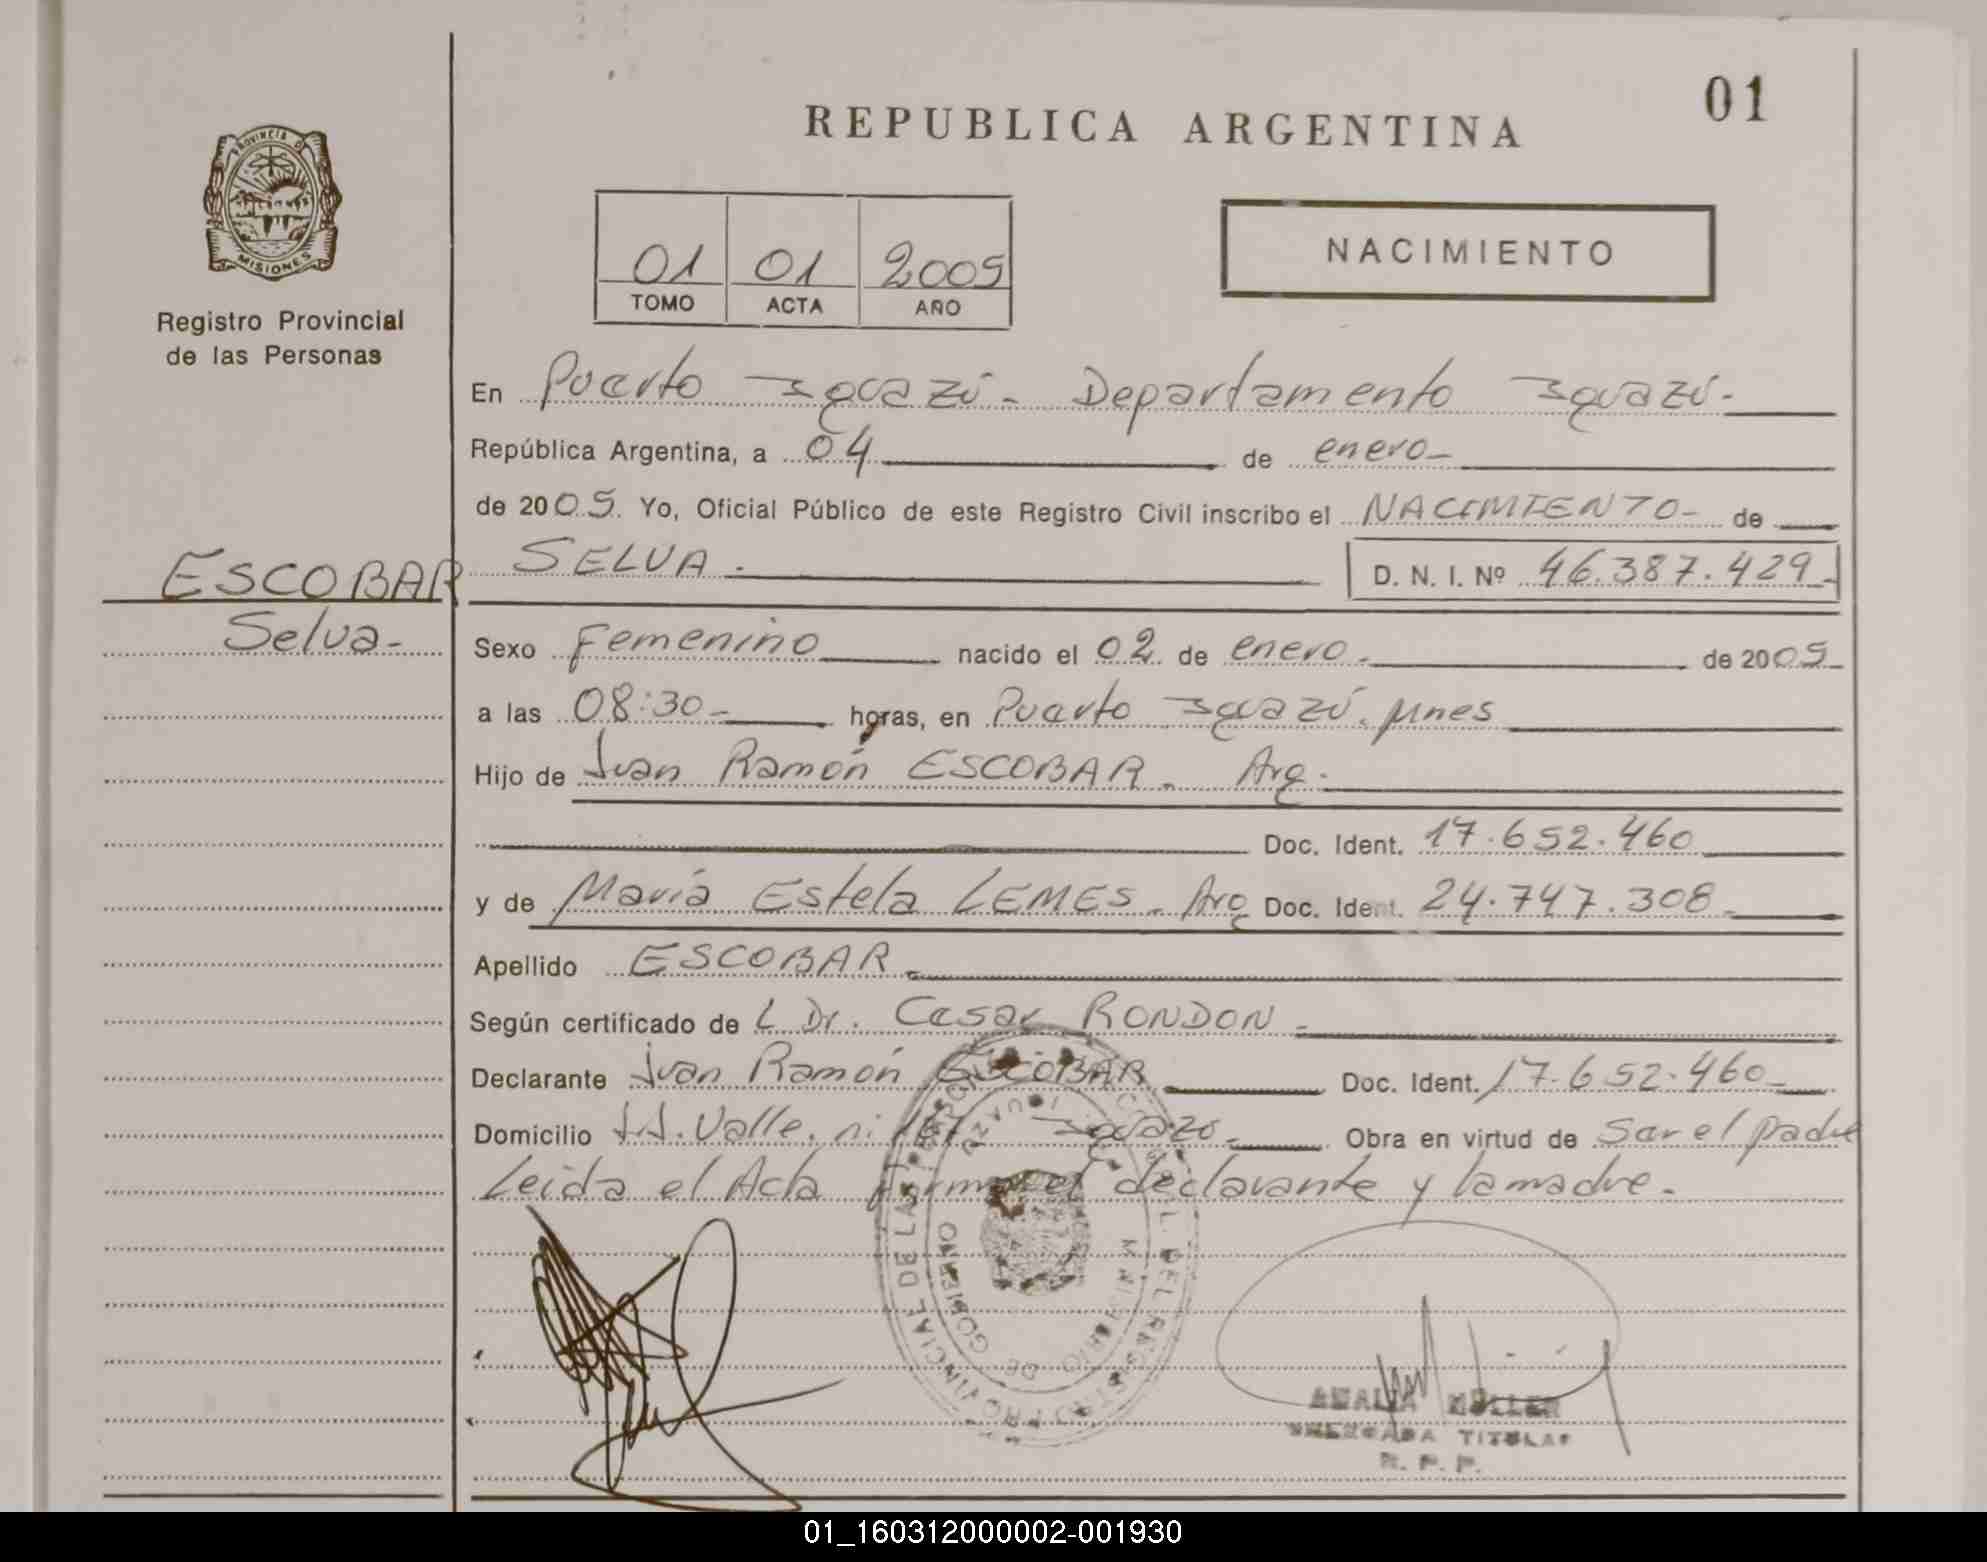 01
REPUBLICA ARGENTINA
PROVINCIA D
MISIONES
Registro Provincial
de las Personas
01 01 2005
TOMO ACTA AÑO
NACIMIENTO
En Puerto Iguazú - Departamento Iguazú -
República Argentina, a 04 de enero -
de 2005. Yo, Oficial Público de este Registro Civil inscribo el NACIMIENTO - de
ESCOBAR SELVA. D. N. I. Nº 46.387.429 -
Selva -
Sexo Femenino nacido el 02 de enero. de 2005
a las 08:30 - horas, en Puerto Iguazú. Mnes
Hijo de Juan Ramón ESCOBAR. Arg.
Doc. Ident. 17.652.460
y de María Estela LEMES. Arg Doc. Ident. 24.747.308 -
Apellido ESCOBAR.
Según certificado de L Dr. Cesar RONDON -
Declarante Juan Ramón ESCOBAR Doc. Ident. 17.652.460 -
Domicilio J.J. Valle. Iguazú - Obra en virtud de Ser el padre
Leida el Acta declarante y la madre.
AMALIA MULLER
DELEGADA TITULAR
R. P. P.
01_160312000002-001930